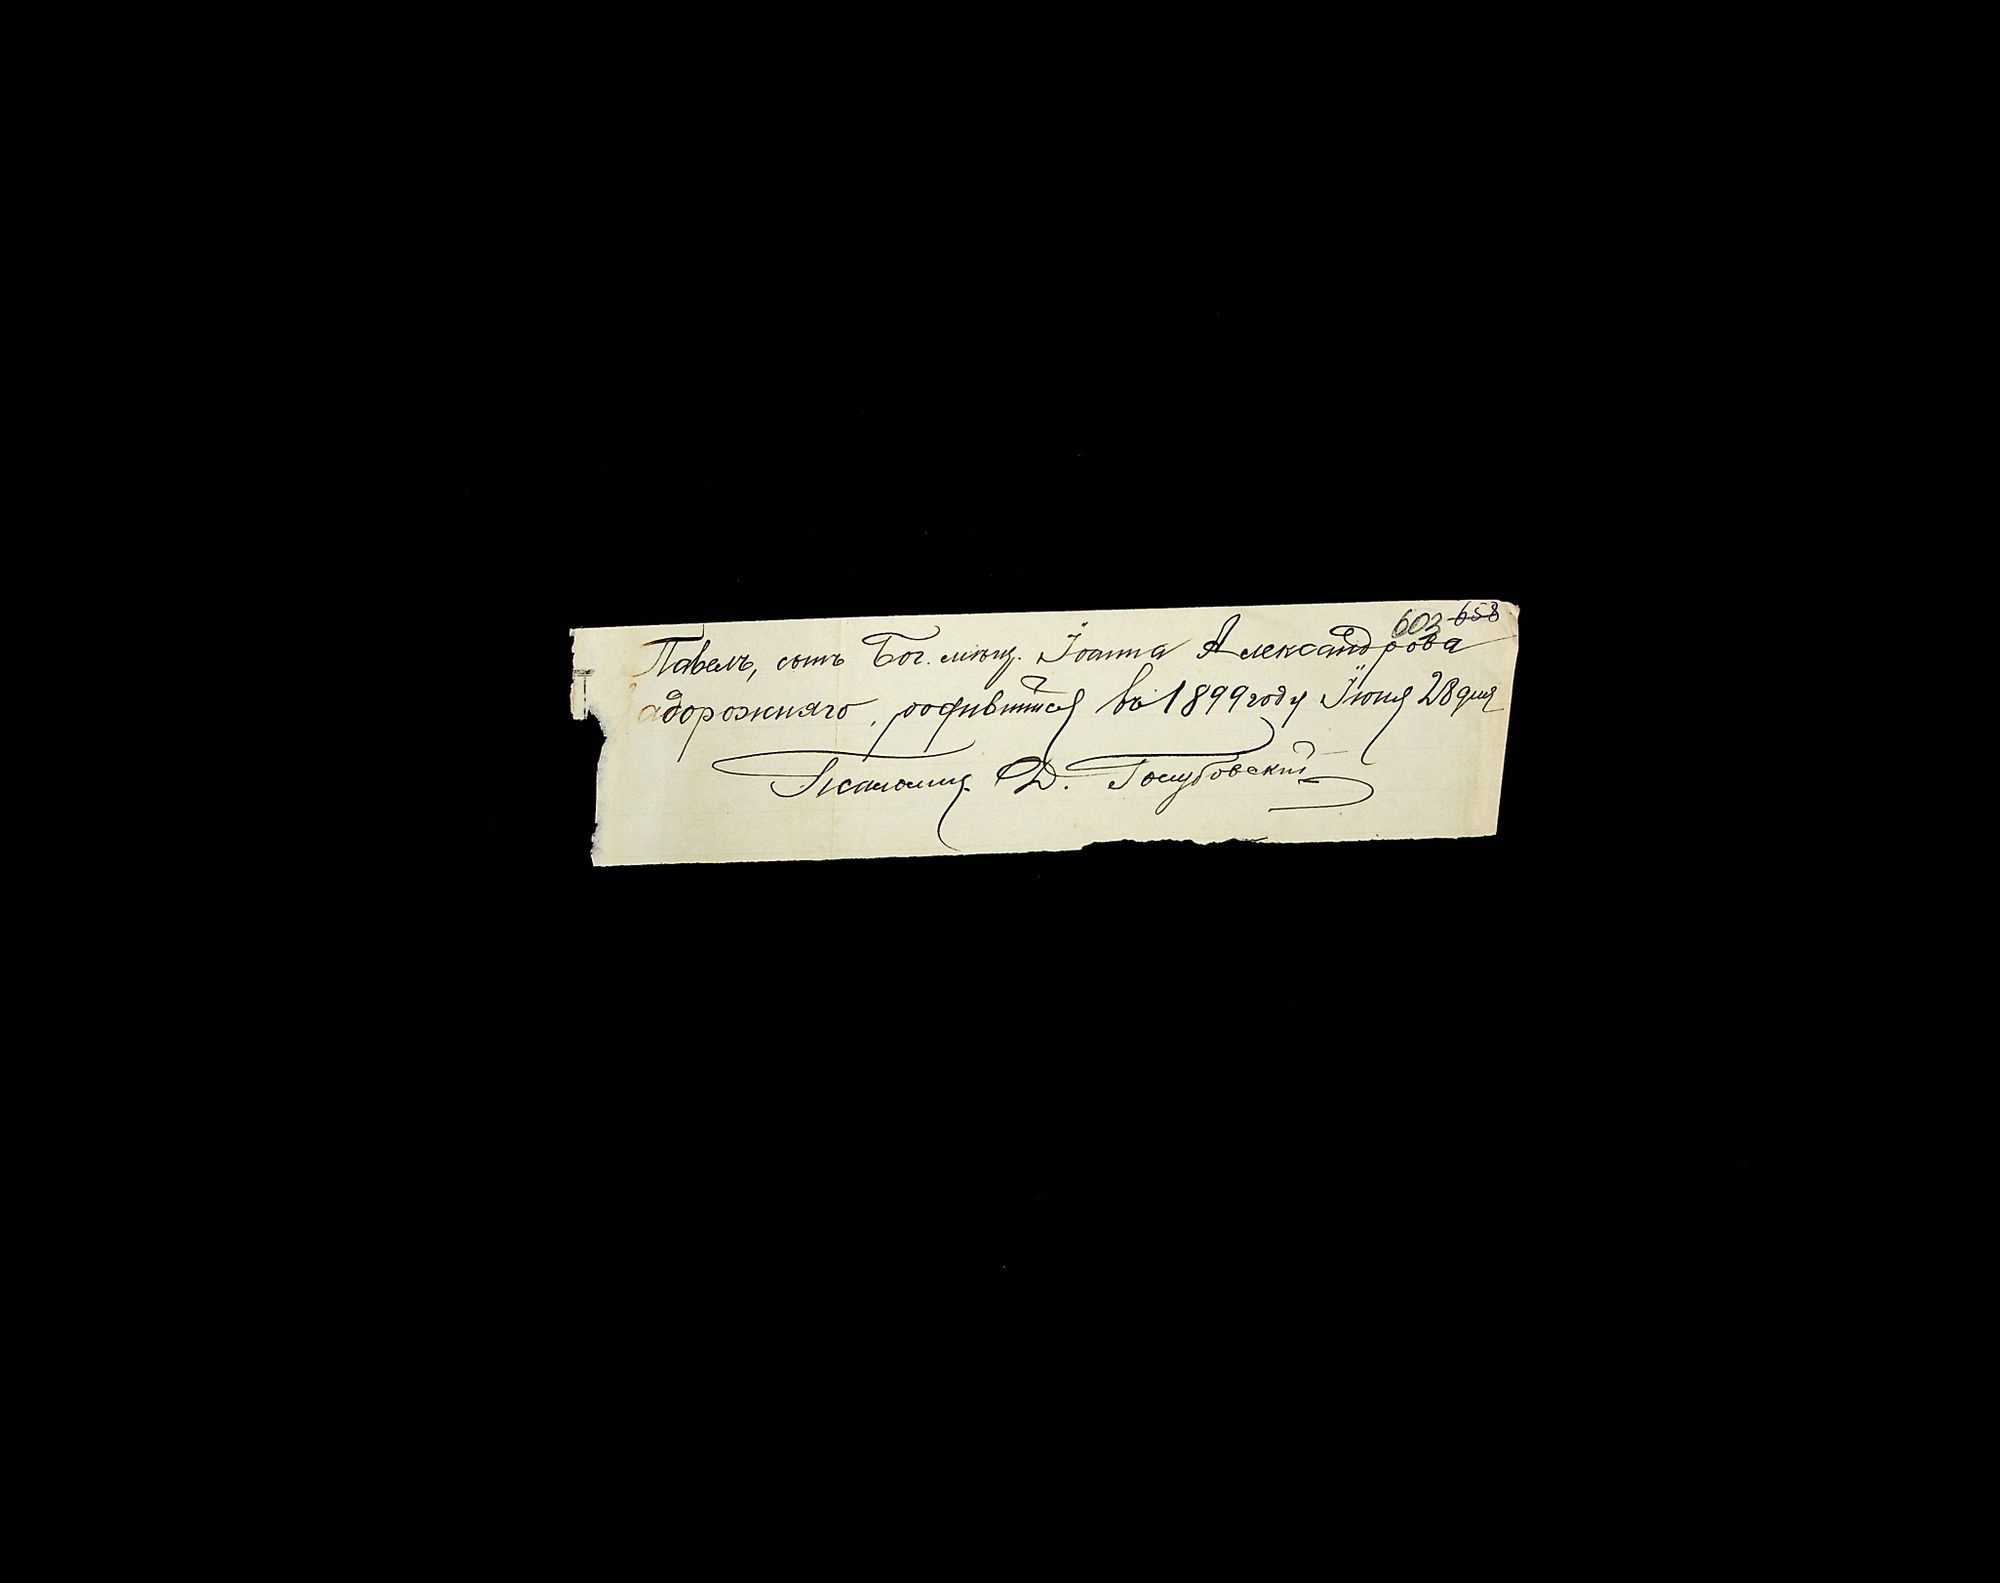 603 658
Павелъ, сынъ Бог. мѣщ. Іоанна Александрова
Задорожняго, родившійся въ 1899 году Іюня 28 дня
Псаломщ. Д. Голубовскій